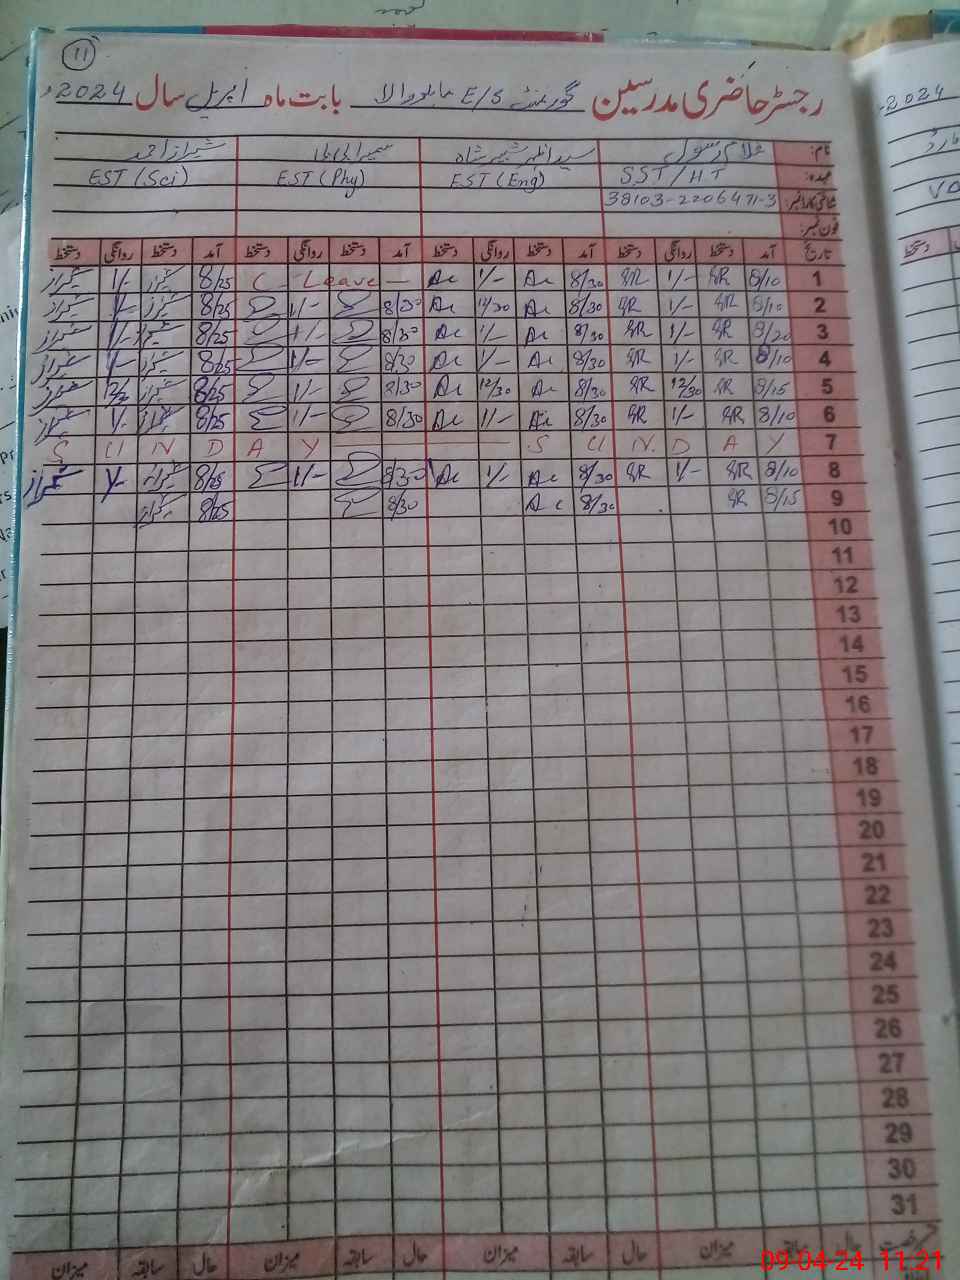 11
رجسٹر حاضری مدرسین گورنمنٹ E/S بابت ماہ اپریل سال 2024ء
نام: غلام رسول سید اظہر شبیر شاہ سمیرا بی بی شیراز احمد
عہدہ: SST/HT EST (Eng) EST (Phy) EST (Sci)
شناختی کارڈ نمبر: 38103-2206471-3
فون نمبر:
تاریخ آمد دستخط روانگی دستخط آمد دستخط روانگی دستخط آمد دستخط روانگی دستخط آمد دستخط روانگی دستخط
1 8/10 GR 1/- GR 8/30 1/- C Leave 8/25 شیراز 1/- شیراز
2 8/10 GR 1/- GR 8/30 12/30 8/30 1/- 8/25 شیراز 1/- شیراز
3 8/20 GR 1/- GR 8/30 1/- 8/30 1/- 8/25 شیراز 1/- شیراز
4 8/10 GR 1/- GR 8/30 1/- 8/30 1/- 8/25 شیراز 1/- شیراز
5 8/15 GR 12/30 GR 8/30 12/30 8/30 1/- 8/25 شیراز شیراز
6 8/10 GR 1/- GR 8/30 1/- 8/30 1/- 8/25 شیراز 1/- شیراز
7 S U N D A Y S U N D A Y
8 8/10 GR 1/- GR 8/30 1/- 8/30 1/- 8/25 شیراز 1/- شیراز
9 8/15 GR 8/30 8/30 8/25 شیراز
10
11
12
13
14
15
16
17
18
19
20
21
22
23
24
25
26
27
28
29
30
31
رخصت حال سابقہ میزان حال سابقہ میزان حال سابقہ میزان حال سابقہ میزان
09-04-24 11:21
2024